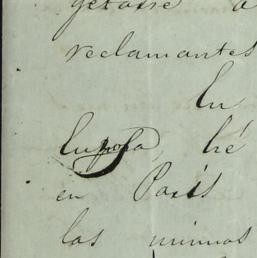 reclamantes
En
Europa, hé
en Paris
las mismos